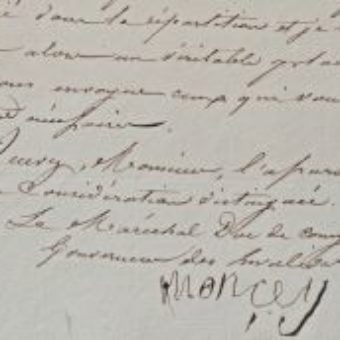 dans la répartition et je
alors un véritable
vous envoyer ceux qui vous
nécessaire.
Monsieur, l'assura
Considération distinguée.
Le Maréchal Duc de Coneg
Gouverneur des Invalides
Moncey